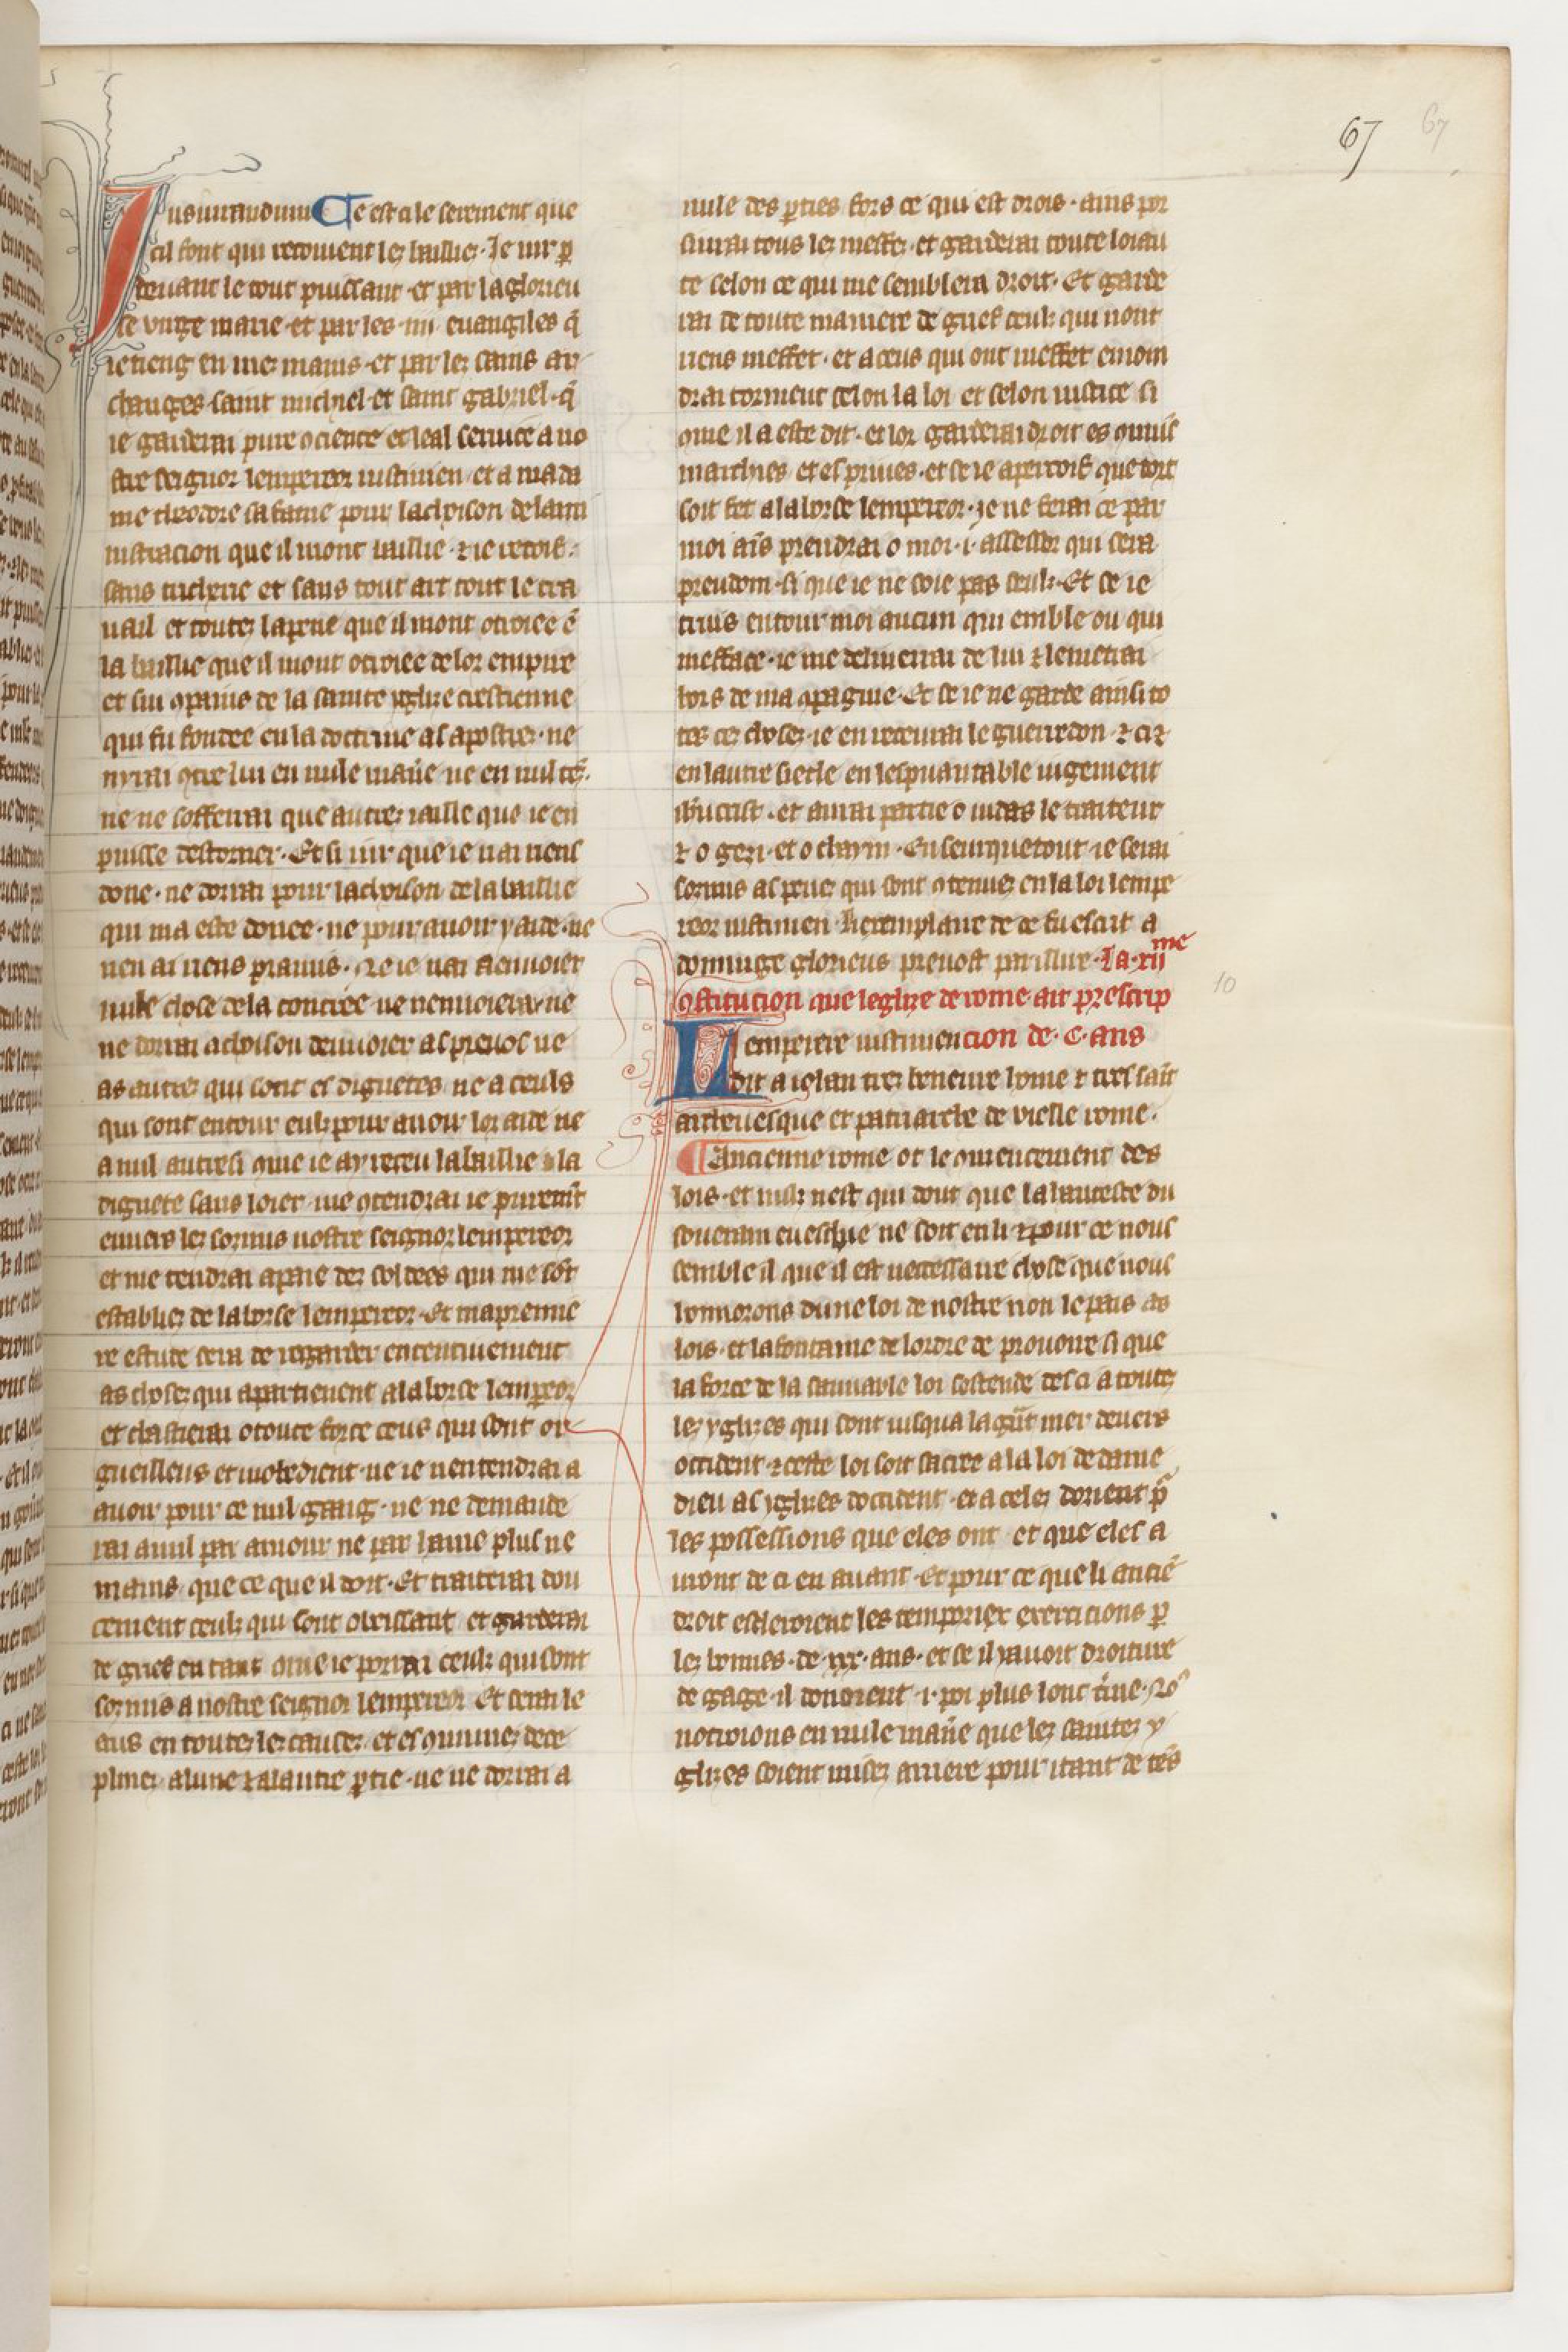 67 67
Iusiurandum Ce est ci le serement que
cil font qui recoiuent lez baillies. Je iur ꝑ
deuant le tout puissant et par la glorieu
se virge marie et par les .iiii. euangiles q̄
ie tieng en mez mains et par lez sains ar
changes saint michiel et saint gabriel. q̄
ie garderai pure ꝯcience et leal seruice a no
stre seignor lempereor iustinien et a mada
me theodore sa fame pour lachoison de lami
nistracion que il mont baillie ⁊ ie recoif.
sans tricherie et sans tout art tout le tra
uail et toutez la peine que il mont otroiee ē
la baillie que il mont otroiee de lor empire
et sui ꝯpains de la sainte yglise crestienne
qui fu fondee en la doctrine as apostrez. ne
nyrai ꝯtre lui en nule maniē ne en nul tēs.
ne ne sofferrai que autrez i aille que ie en
puisse destorner. Et si iur que ie nai riens
done. ne dorrai pour lachoison de la baillie
qui ma este donee. ne pour auoir y aide. ne
nen ai riens pramis. Ne ie nai a enuoier
nule chose de la contree ne nenuoierai. ne
ne dorrai achoison denuoier as preuos ne
as autrez qui sont es dignetes ne a ceuls
qui sont entour eulz pour auoir lor aide ne
a nul autre si ꝯme ie ay receu la baillie la
dignete sans loier me ꝯtendrai ie puremēt
enuers lez sozmis nostre seignor lempereor
et me tendrai apaie dez soldees qui me sōt
establiez de la borse lempereor. Et ma premie
re estude sera de regarder ententiuement
as chosez qui apartienent a la borse lempeor
et chastierai o toute force ceus qui sont or
gueilleus et inobedient. ne ie nentendrai a
auoir pour ce nul gaaig. ne ne demande
rai a nul par amour ne par haine plus ne
mains que ce que il doit. Et traiterai dou
cement ceulz qui sont obeissant et garderai
de grief en tant ꝯme ie porrai ceulz qui sont
sozmis a nostre seignor lempereor Et serai le
aus en toutez lez causez et es ꝯmunez dece
plinez a lune ⁊ a lautre ꝑtie. ne ne dorrai a
nule des ꝑties fors ce qui est drois. ains por
siurai tous lez meffez. et garderai toute loiau
te selon ce qui me semblera droit. Et garde
rai de toute maniere de grief ceulz qui nont
riens meffet. et a ceus qui ont meffet enioin
drai torment selon la loi et selon iustice si
ꝯme il a este dit. et lor garderai droit es ꝯmuns
marchies et es priues. et se ie apercoif que tort
soit fet a la borse lempereor. ie ne ferai ce par
moi ains prendrai o moi .i. assessor qui sera
preudom. si que ie ne soie pas seulz. Et se ie
truis entour moi aucun qui emble ou qui
mefface. ie me deliuerrai de lui ⁊ le metrai
hors de ma ꝯpagnie. Et se ie ne garde ainsi to
tes cez chosez ie en receurai le guerredon ⁊ ci ⁊
en lautre siecle en lespuantable iugement
ihucrist. et aurai partie o iudas le traiteur
⁊ o gezi. et o chaym. En seurquetout ie serai
sozmis as peinez qui sont ꝯtenuez en la loi lempe
reor iustinien. Lexemplaire de ce fu escrit a
dominge glorieus preuost par illire. La .xii.me
ꝯstitucion que leglize de rome ait prescrip
Lemperere iustinien cion de .C. ans
dit a iehan trez beneure home ⁊ tres saīt
arceuesque et patriarche de vielle rome.
Ancienne rome ot le ꝯmencement des
lois. et nulz nest qui dout que la hautesce du
souerain eueschie ne soit en li ⁊ pour ce nous
semble il que il est necessaire chose que nous
honnorons dune loi de nostre non le pais as
lois. et la fontaine de lordre de prouoire si que
la force de la sauuable loi sestende des ci a toutez
lez yglizes qui sont iusqua la grāt mer deuers
occident. ⁊ ceste loi soit sacree a la loi de dame
dieu as yglizes doccident. et a celez dorient pᵃ
les possessions que eles ont et que eles a
uront de ci en auant. Et pour ce que li anciē
droit esclevoient les temporiex exercitions ꝑ
lez bonnes. de .xxx. ans. et se il y auoit droiture
de gage. il donoient .i. poi plus lonc t̄me. No
notroions en nule maniē que lez saintez y
glizes soient misez arriere pour itant de tēs
10